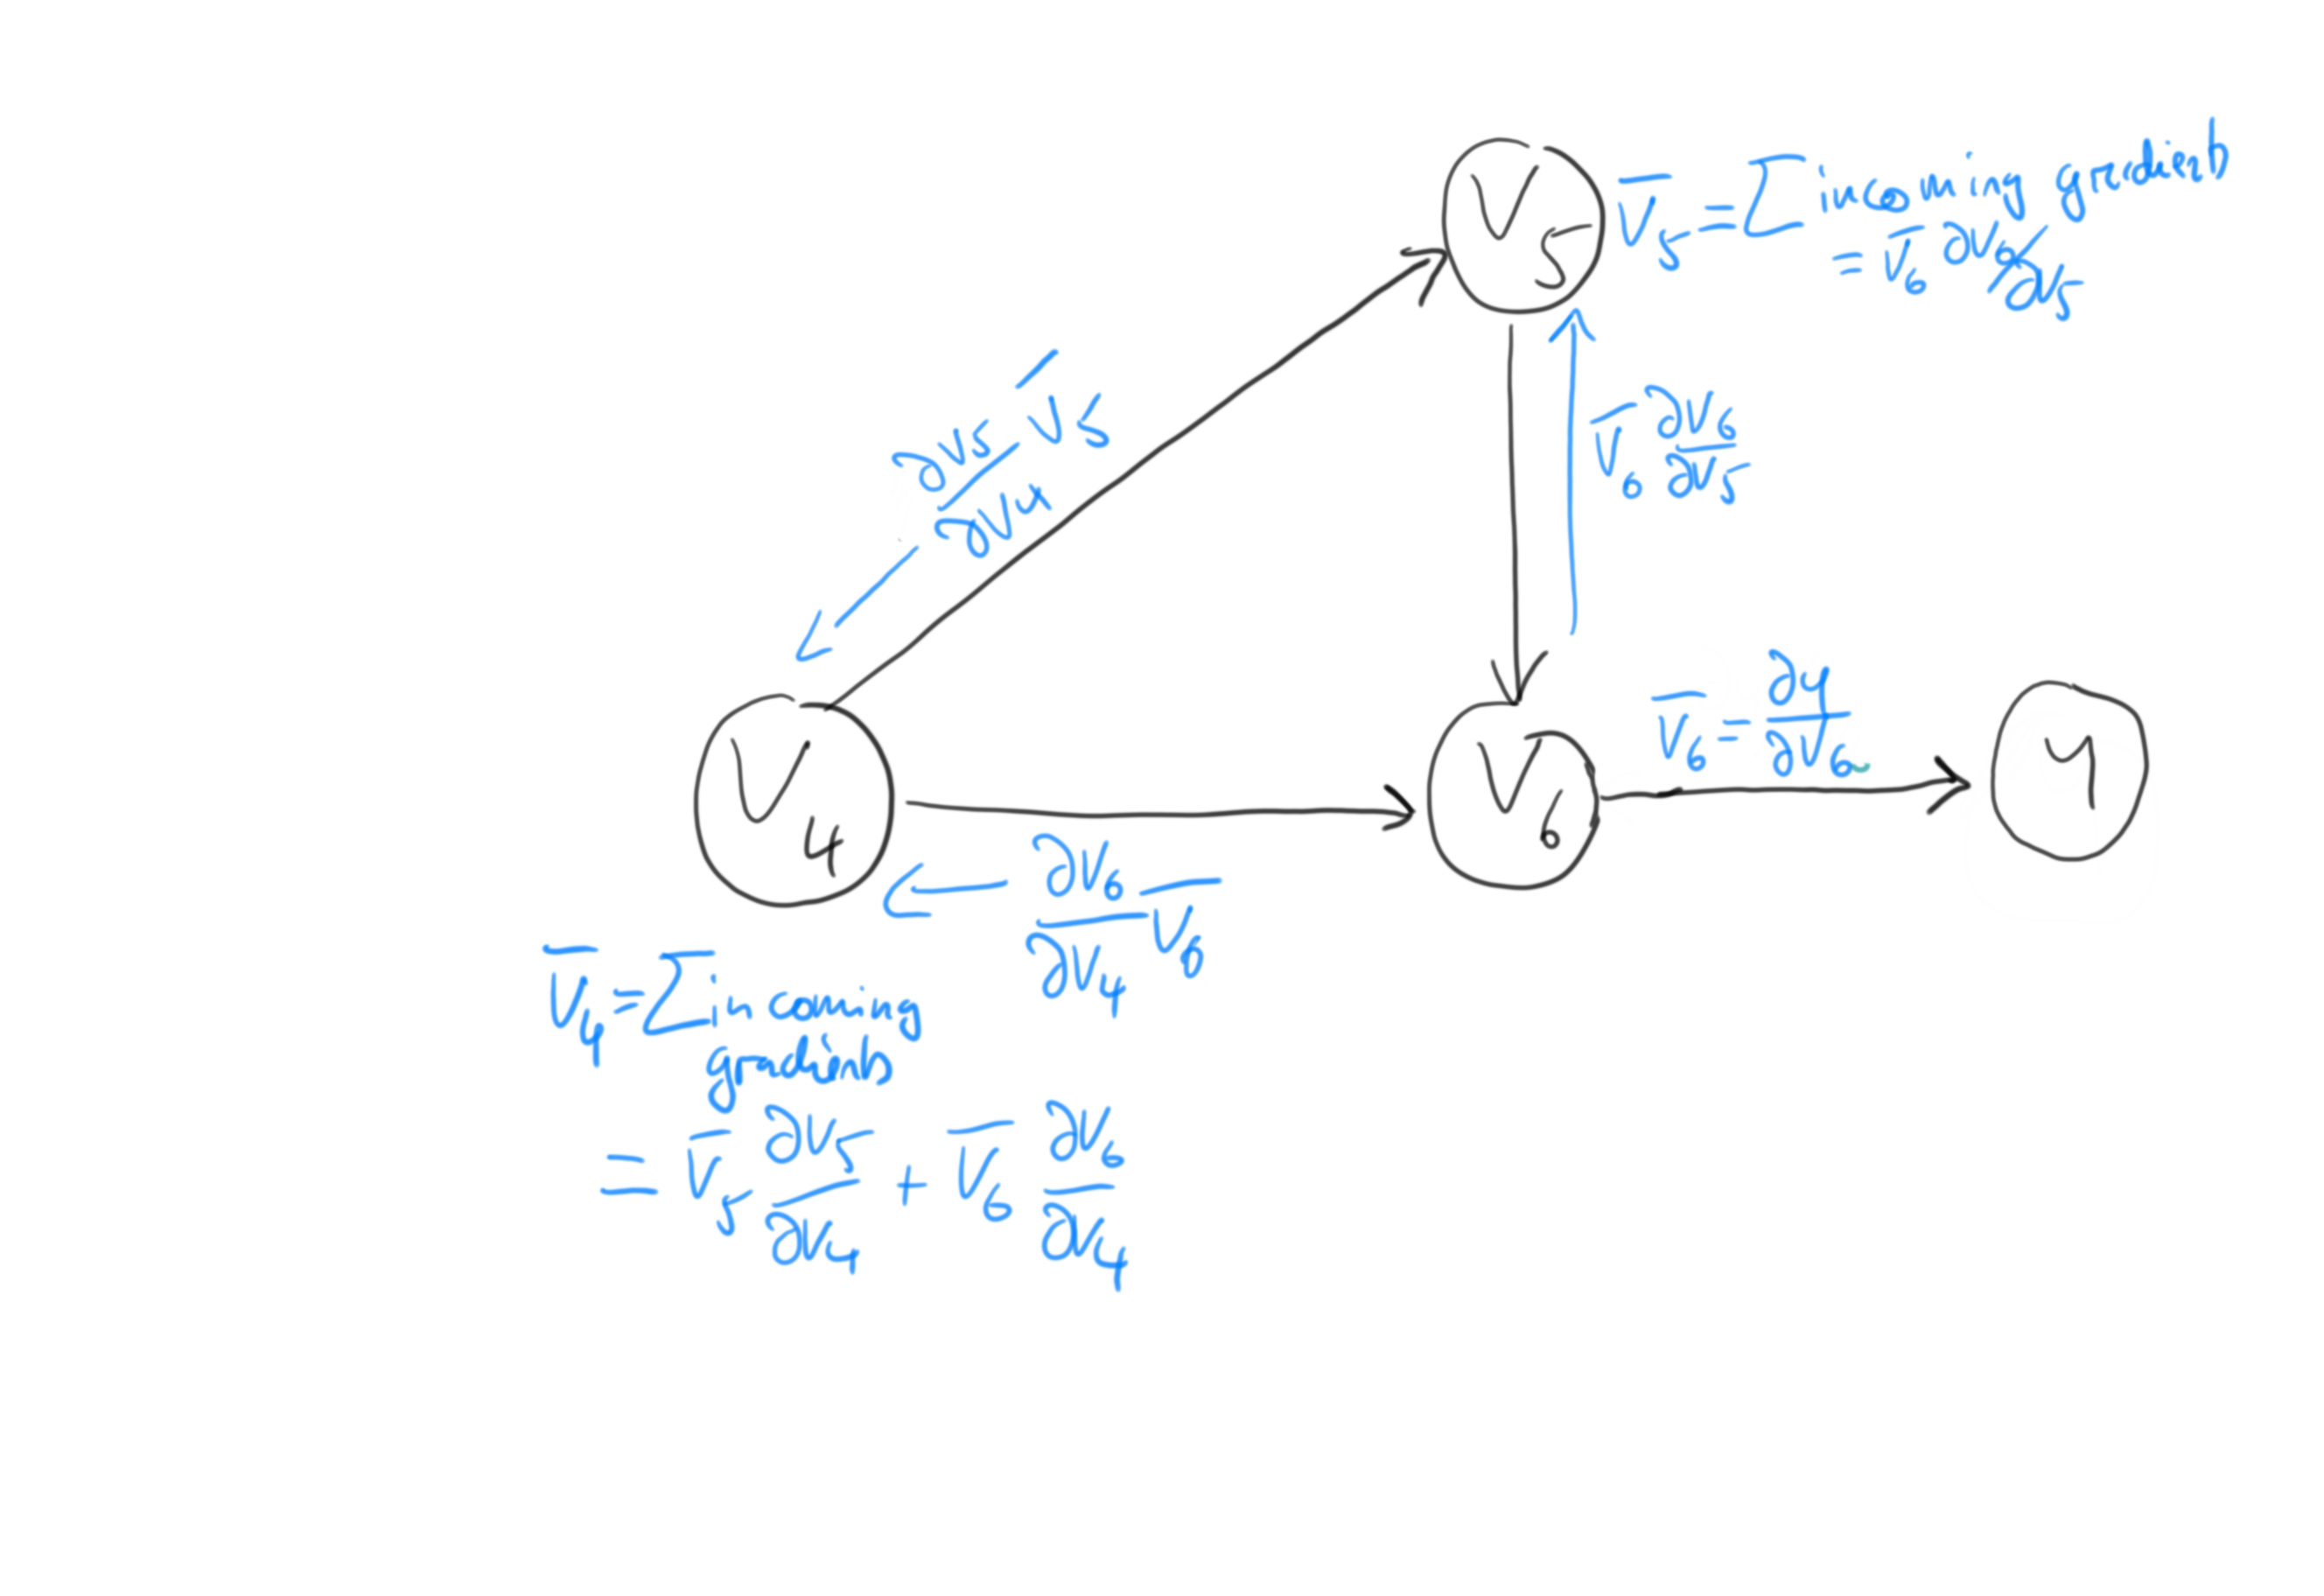 V₅
V̅₅ = Σ incoming gradients
= V̅₆ ∂V₆/∂V₅
∂V₅/∂V₄ V̅₅
V̅₆ ∂V₆/∂V₅
V̅₆ = ∂y/∂V₆
V₄
V₆
y
∂V₆/∂V₄ V̅₆
V̅₄ = Σ incoming
gradients
= V̅₅ ∂V₅/∂V₄ + V̅₆ ∂V₆/∂V₄